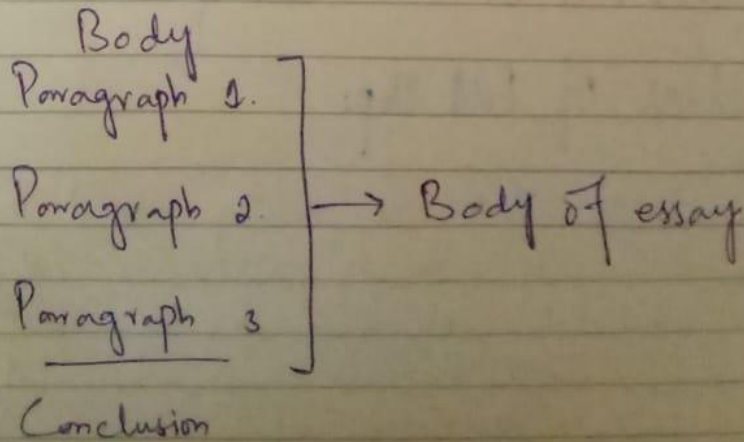 Body
Paragraph 1.
Paragraph 2. → Body of essay
Paragraph 3
Conclusion